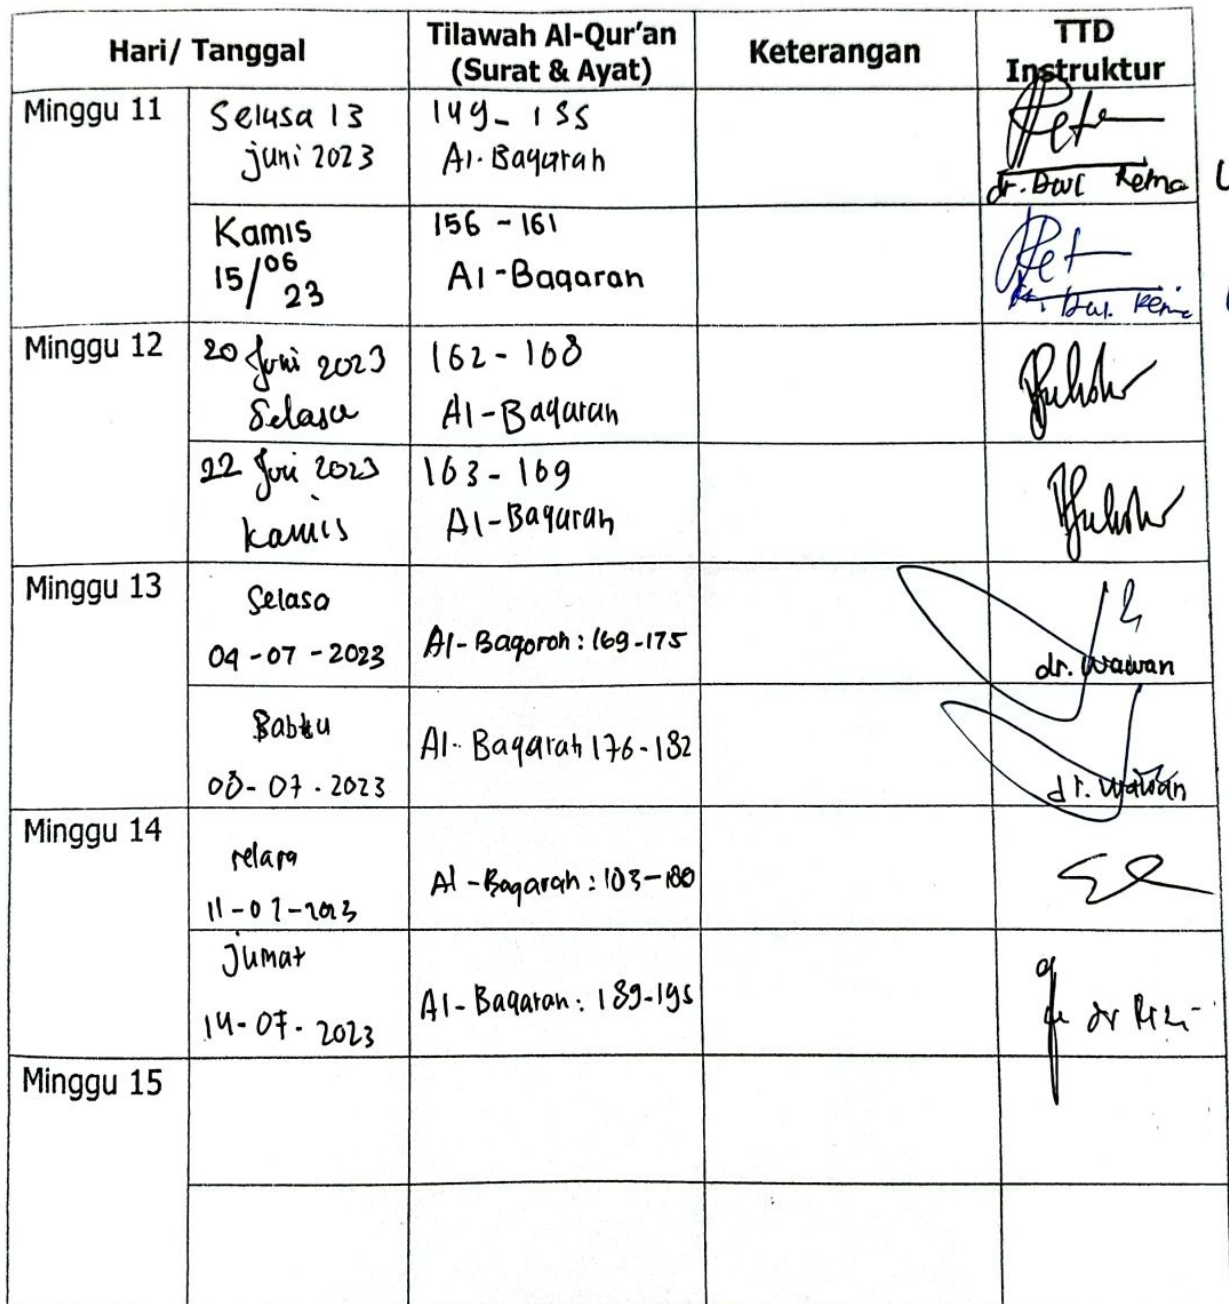 Hari/ Tanggal
Tilawah Al-Qur'an
(Surat & Ayat)
Keterangan
TTD
Instruktur
Minggu 11
Selasa 13
juni 2023
149- 155
Al-Baqarah
dr.
Kamis
15/06
23
156 - 161
Al-Baqarah
Minggu 12
20 Juni 2023
Selasa
162 - 168
Al-Baqarah
22 Juni 2023
kamis
163 - 169
Al-Baqarah
Minggu 13
Selasa
04 -07 -2023
Al-Baqoroh : 169-175
dr. Wawan
Sabtu
08- 07 - 2023
Al- Baqarah 176-182
dr. Wawan
Minggu 14
selasa
11-07-2023
Al -Baqarah : 183-188
Jumat
14-07- 2023
Al-Baqarah : 189-195
dr
Minggu 15